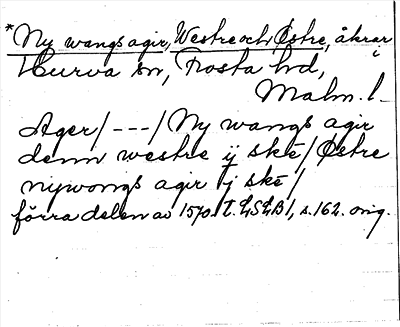 *Ny wangs agir, Westre och Östre, åkrar i
Hurva sn, Frosta hd,
Malm. l.
Ager/---/Ny wangs agir
denn westre ij skē/Østre
nywongs agir ij skē/
förra delen av 1570. t. LSLB1, s.162. orig.